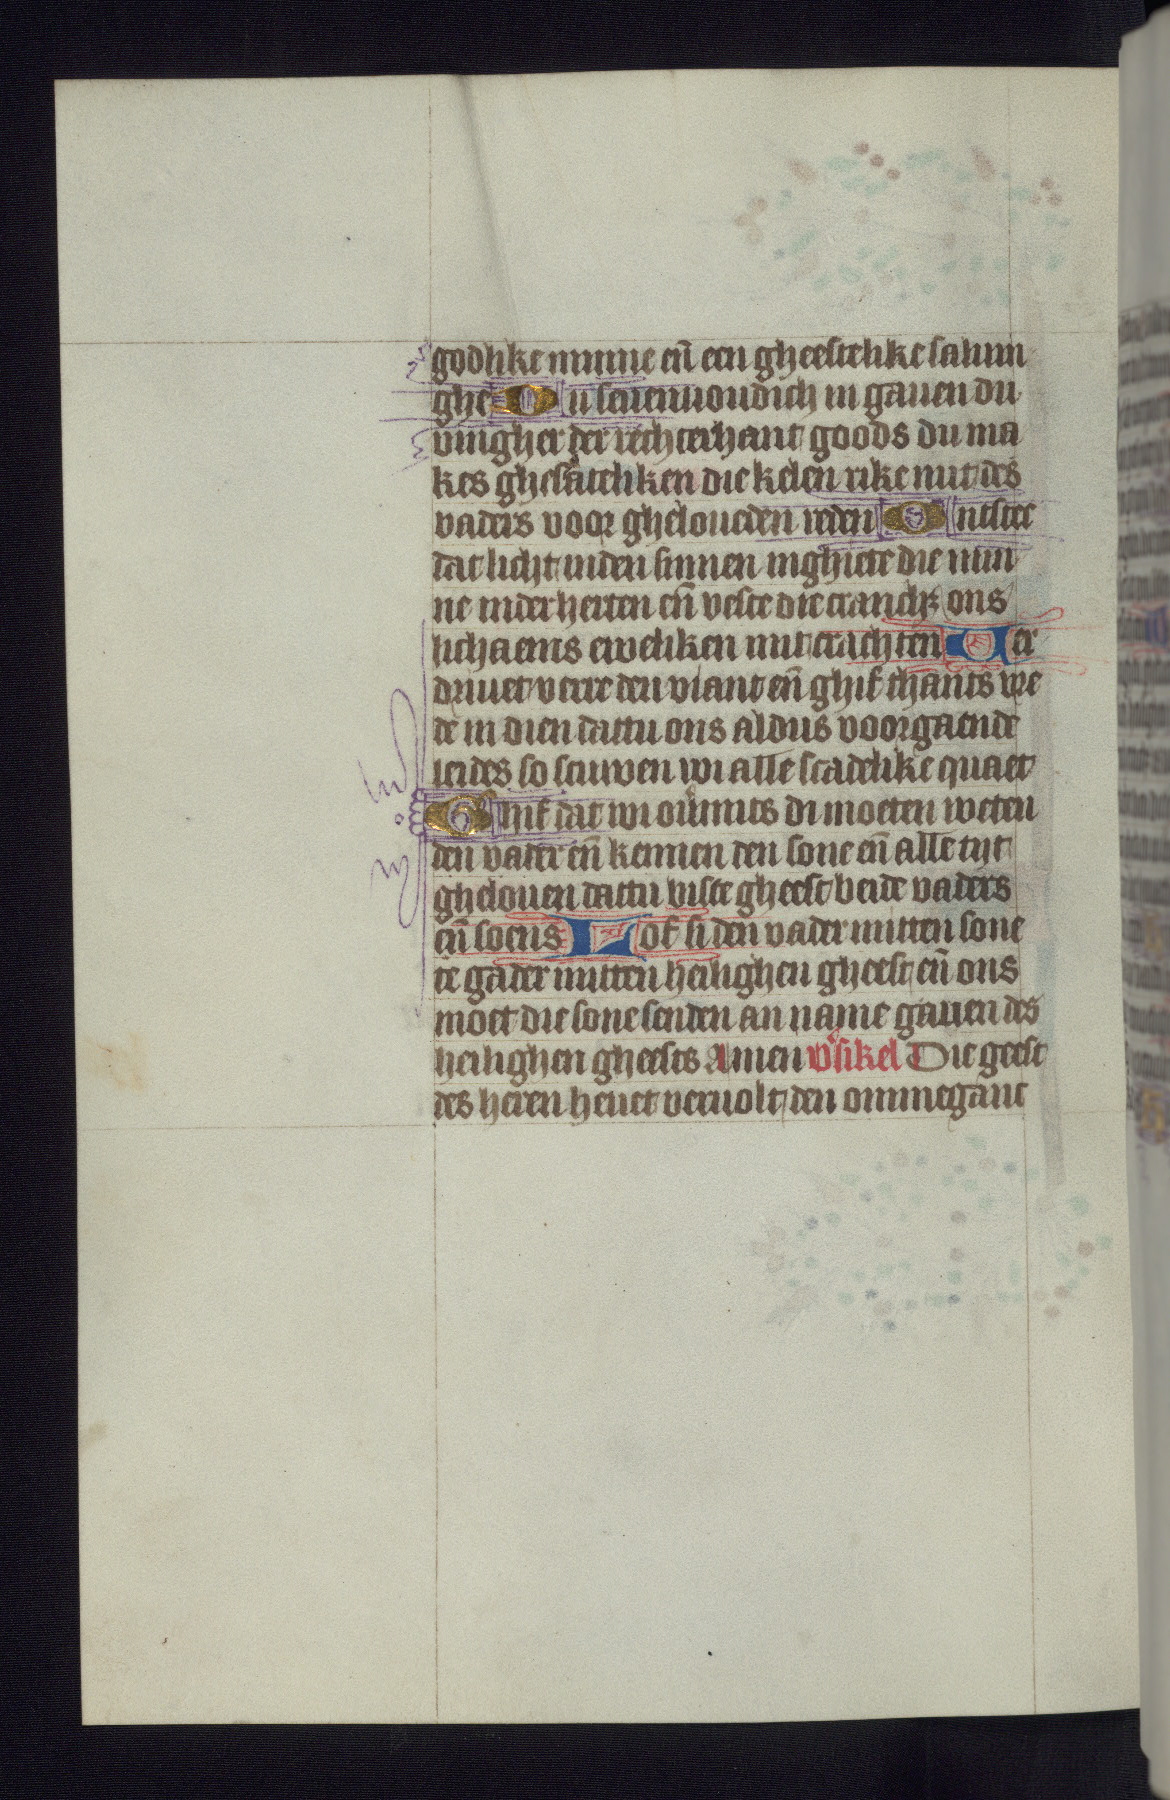 godlike minne eñ een gheestelike salvin
ghe Du sevenvoudich in gaven du
vingher der rechterhant goods du ma
kes ghesateliken die kelen rike mit des
vaders voor gheloveden reden Ontstec
dat licht inden sinnen inghiete die min
ne inder herten eñ veste die crancheit ons
lichaems eweliken mit crachten Ver
drivet verre den viant eñ ghif thants vre
de in dien dattu ons aldus voorgaende
leides so scuwen wi alle scadelike quaet
Ghif dat wi ovmits di moeten weten
den vader eñ kennen den sone eñ alle tyt
gheloven dattu biste gheest beide vaders
eñ soens Lof si den vader mitten sone
te gader mitten heilighen gheest eñ ons
moet die sone senden an name gauen des
heilighen gheests Amen v͛sikel Die geest
des heren hevet vervolt den ommeganc